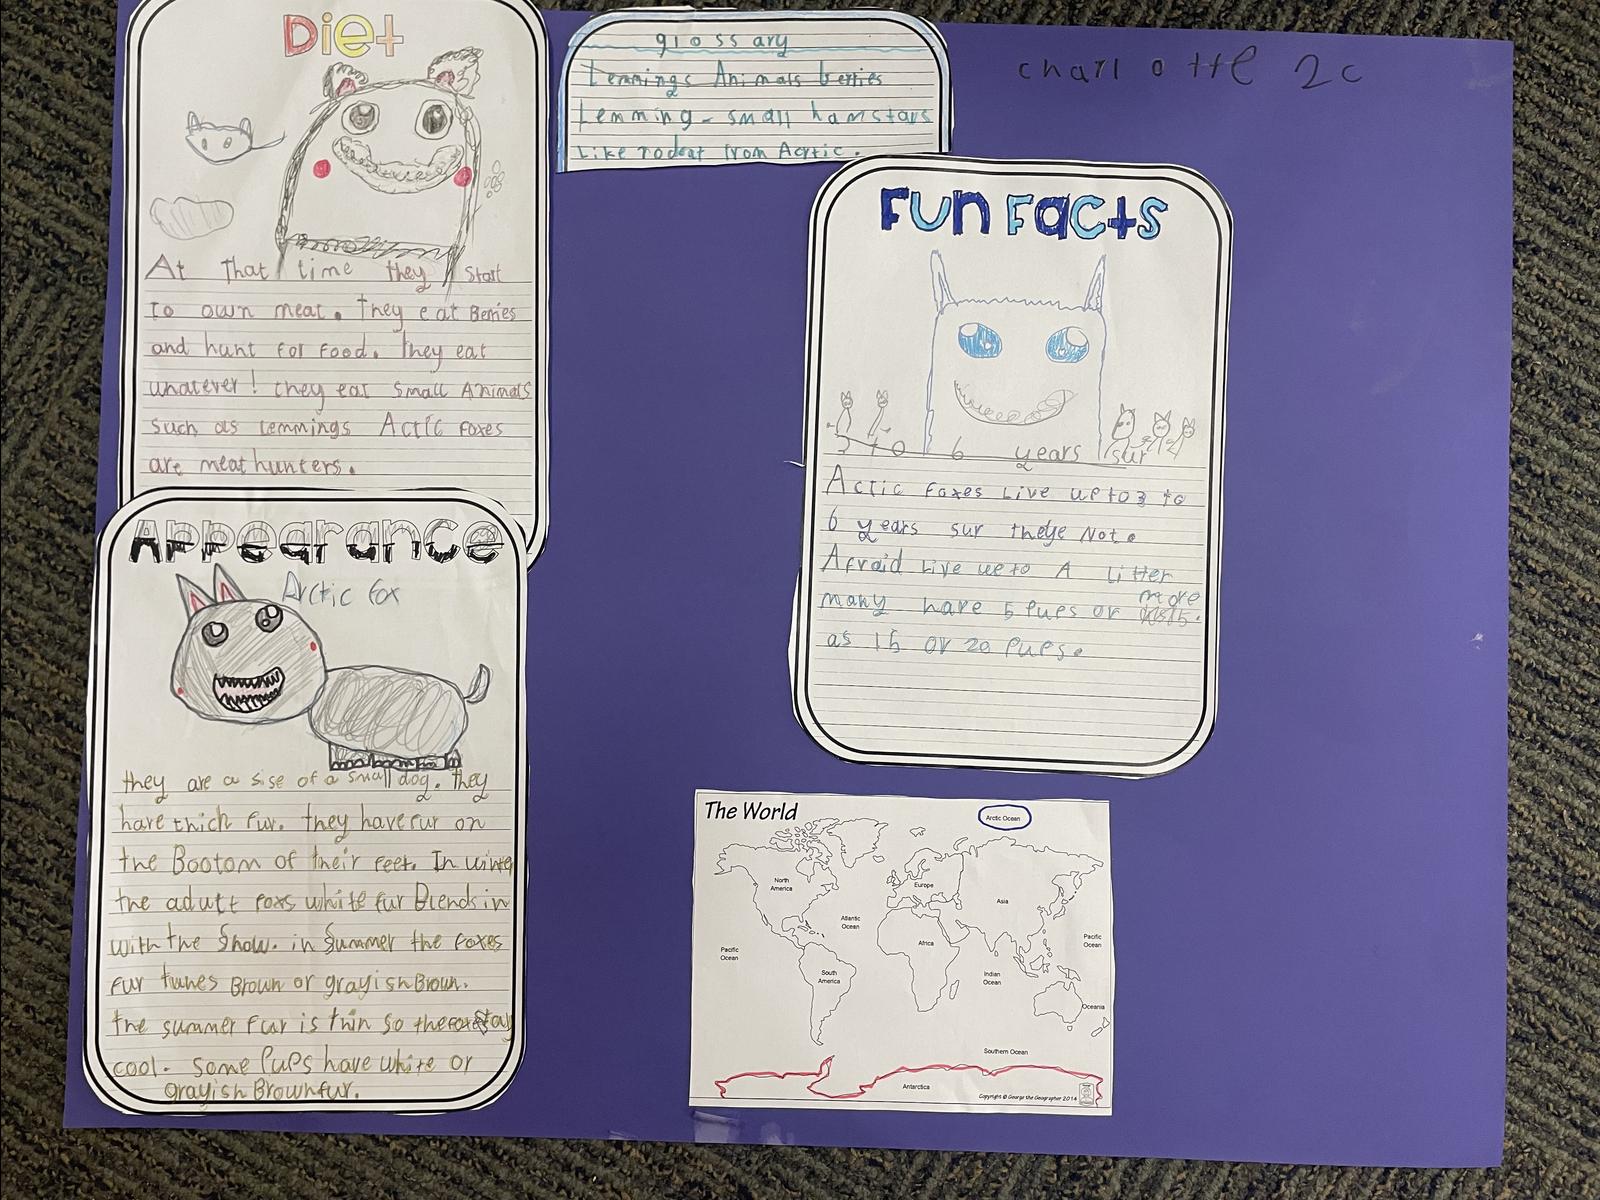 Diet
At that time they start
to own meat. They eat Berries
and hunt for food. They eat
whatever! they eat small Animals
such as lemmings Actic foxes
are meat hunters.
Appearance
Arctic fox
they are a sise of a small dog. they
have thich fur. they have fur on
the Bootom of their feet. In winter
the adult foxs white fur Blends in
with the Snow. in Summer the foxes
fur tunes Brown or grayish Brown.
the summer fur is thin so the foxes stay
cool. some Pups have white or
grayish Brown fur.
glossary
Lemmings Animals berries
Lemming - small hamstars
Like rodeat from Acrtic.
charlotte 2c
Fun Facts
3 to 6 years sur
Actic foxes Live up to 3 to
6 years sur Not.
Afraid Live up to A litter
many have 5 Pups or more
as 15 or 20 Pups.
The World
Arctic Ocean
North
America
Europe
Asia
Atlantic
Ocean
Africa
Pacific
Ocean
Pacific
Ocean
South
America
Indian
Ocean
Oceania
Southern Ocean
Antarctica
Copyright © George the Geographer 2014